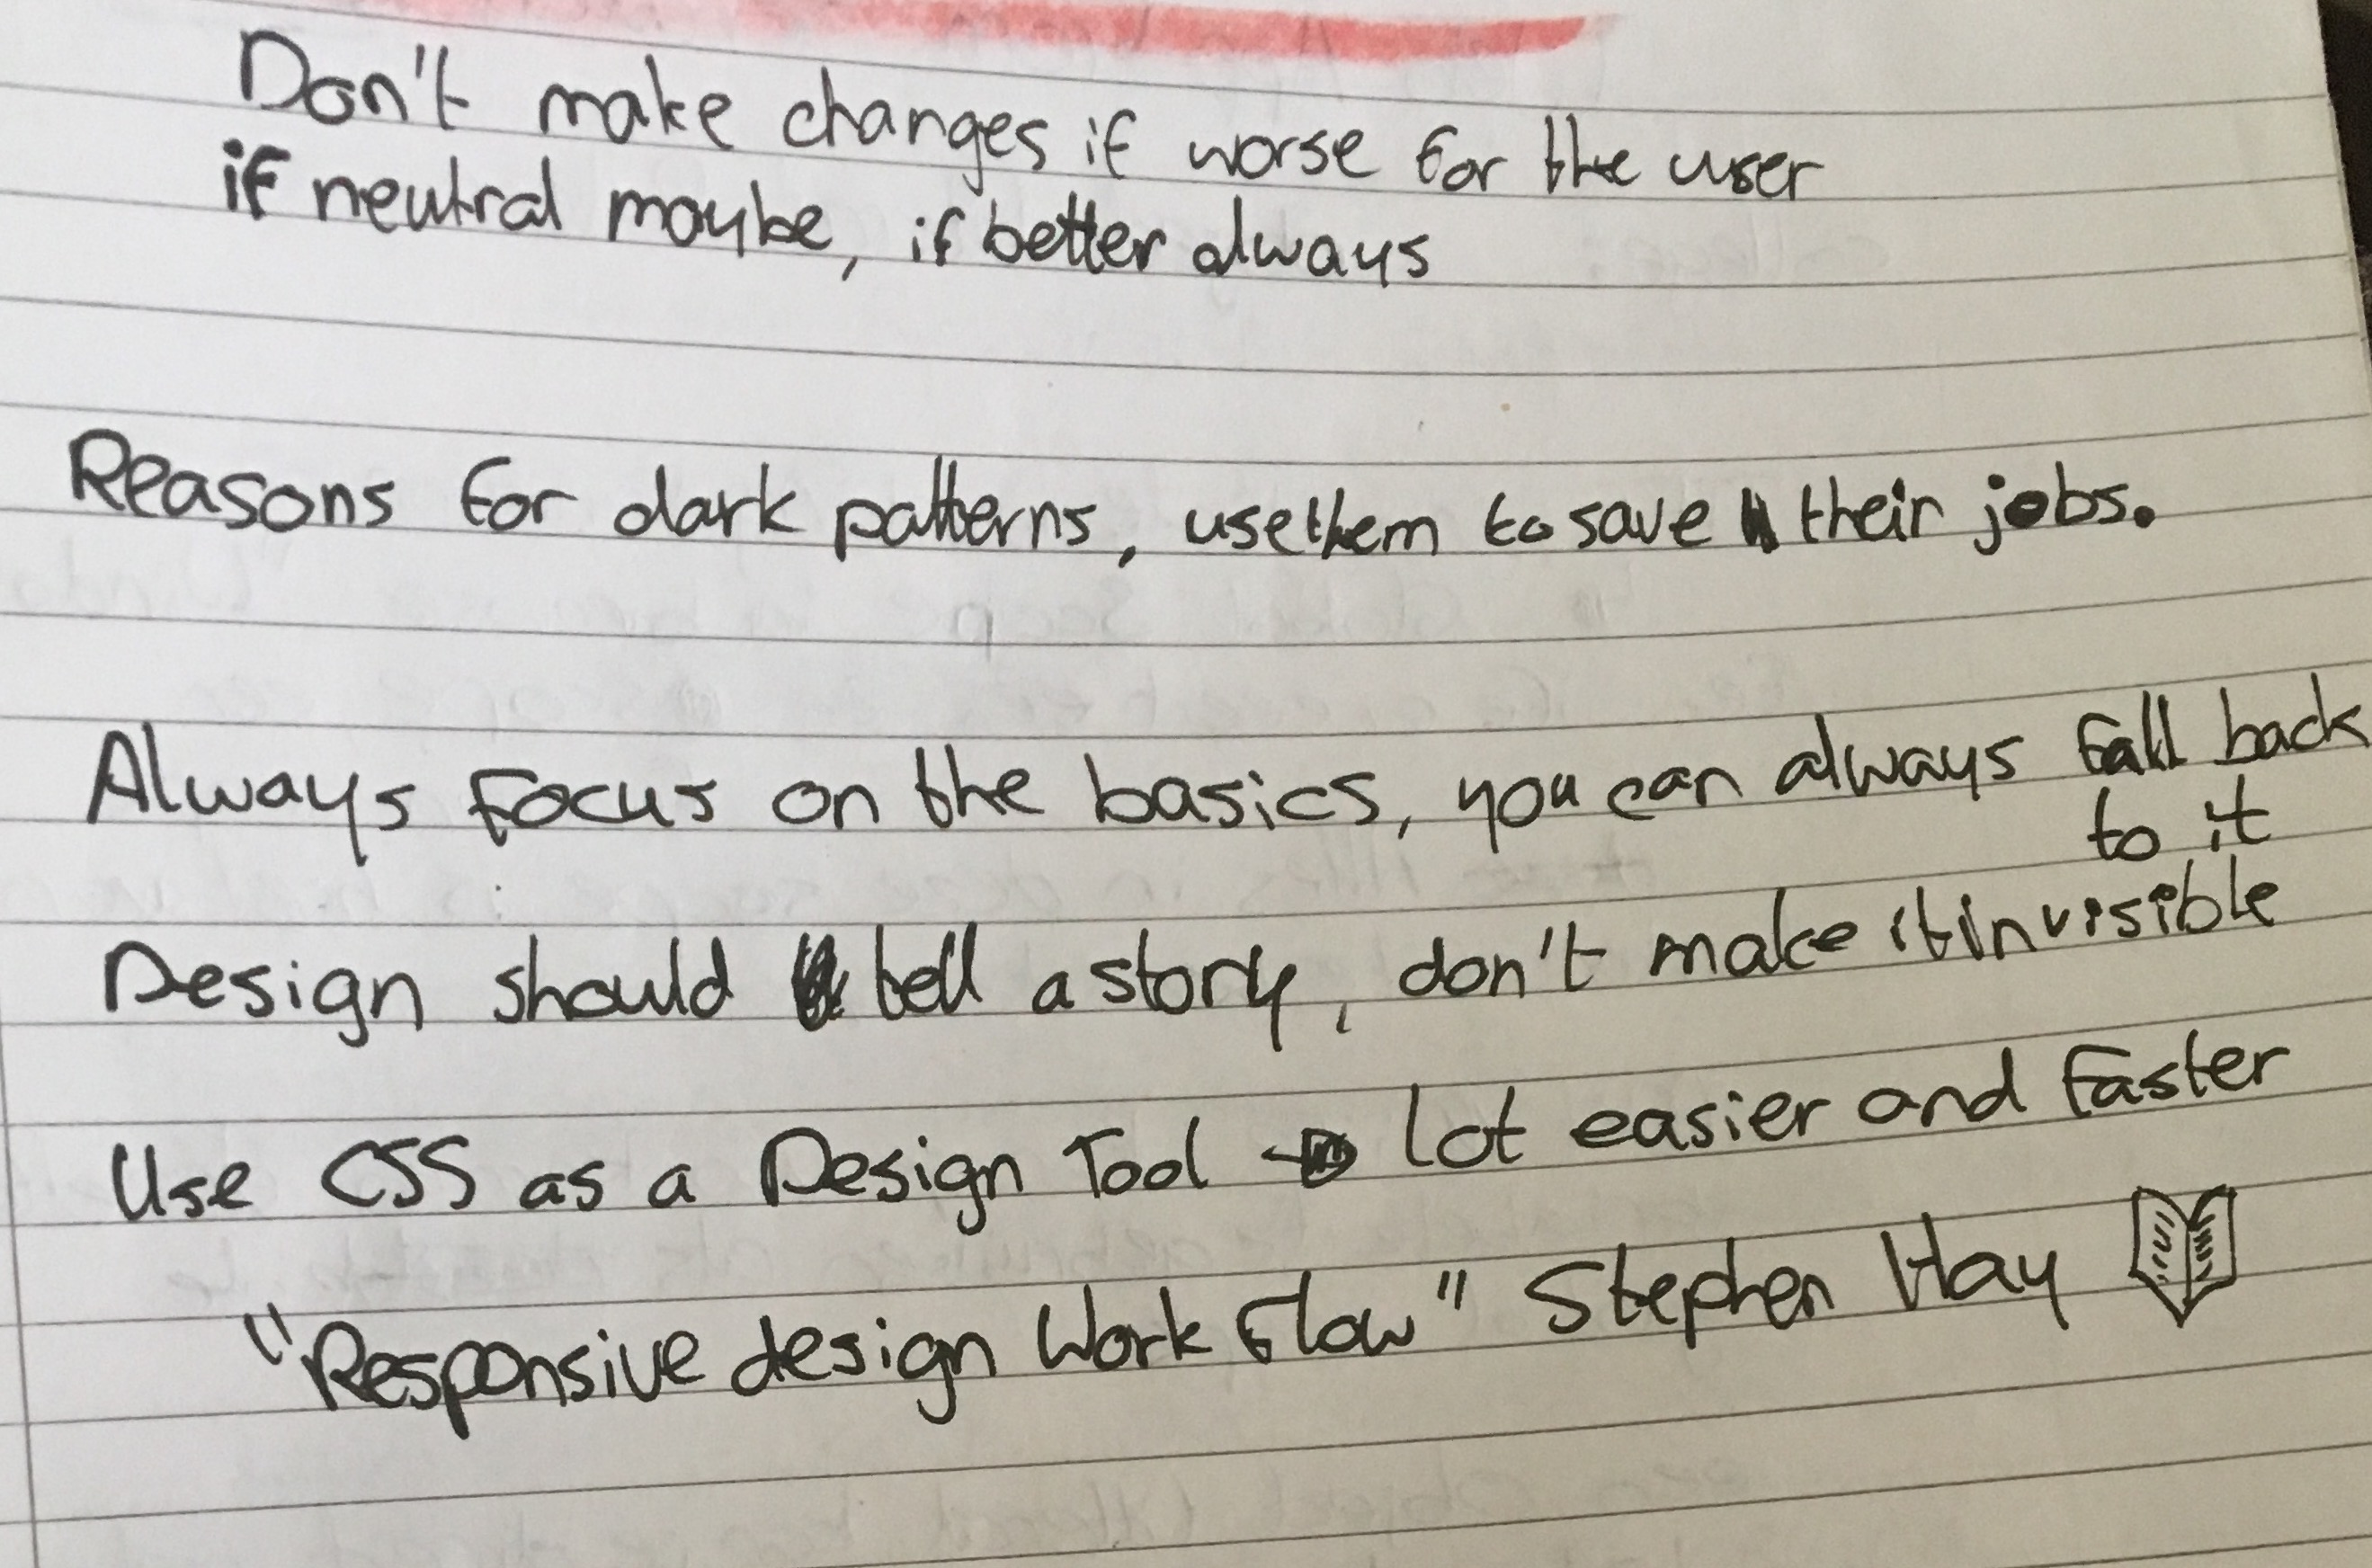 Don't make changes if worse for the user
if neutral maybe, if better always
Reasons for dark patterns, use them to save their jobs.
Always focus on the basics, you can always fall back
to it
Design should tell a story, don't make it invisible
Use CSS as a Design Tool → Lot easier and faster
"Responsive design Work Flow" Stephen Hay